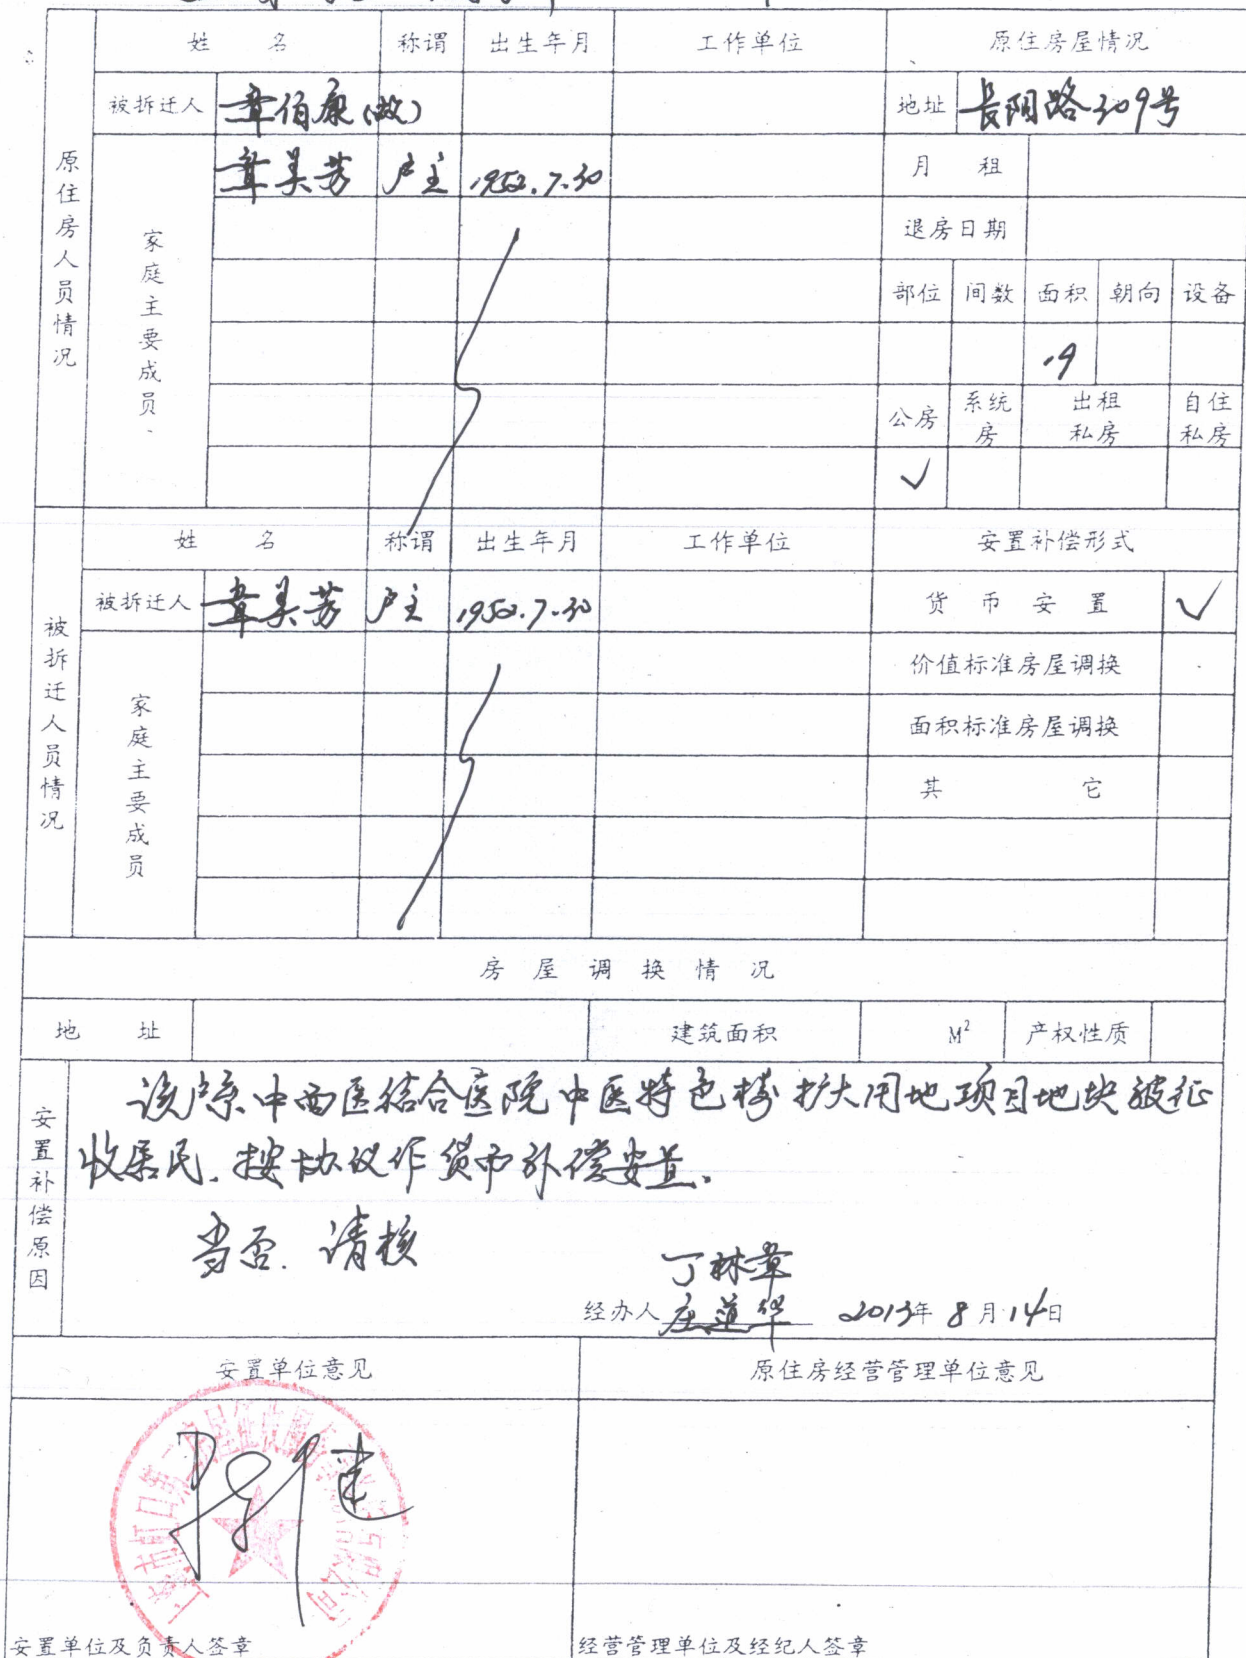 姓 名 称谓 出生年月 工作单位 原住房屋情况
被拆迁人 章伯康(故) 地址 長阳路309号
原住房人员情况
家庭主要成员
章美芳 户主 1952.7.30 月 租
退房日期
部位 间数 面积 朝向 设备
19
公房 系统房 出租私房 自住私房
✓
姓 名 称谓 出生年月 工作单位 安置补偿形式
被拆迁人员情况
被拆迁人 章美芳 户主 1952.7.30 货币安置 ✓
家庭主要成员
价值标准房屋调换
面积标准房屋调换
其 它
房屋调换情况
地 址 建筑面积 M² 产权性质
安置补偿原因
该户系中西医结合医院中医特色楼扩大用地项目地块被征
收居民.按协议作货币补偿安置。
当否.请核
丁林章
经办人 庄莲华 2013年8月14日
安置单位意见 原住房经营管理单位意见
上海市虹口第二房屋征收服务事务所有限公司
安置单位及负责人签章 经营管理单位及经纪人签章